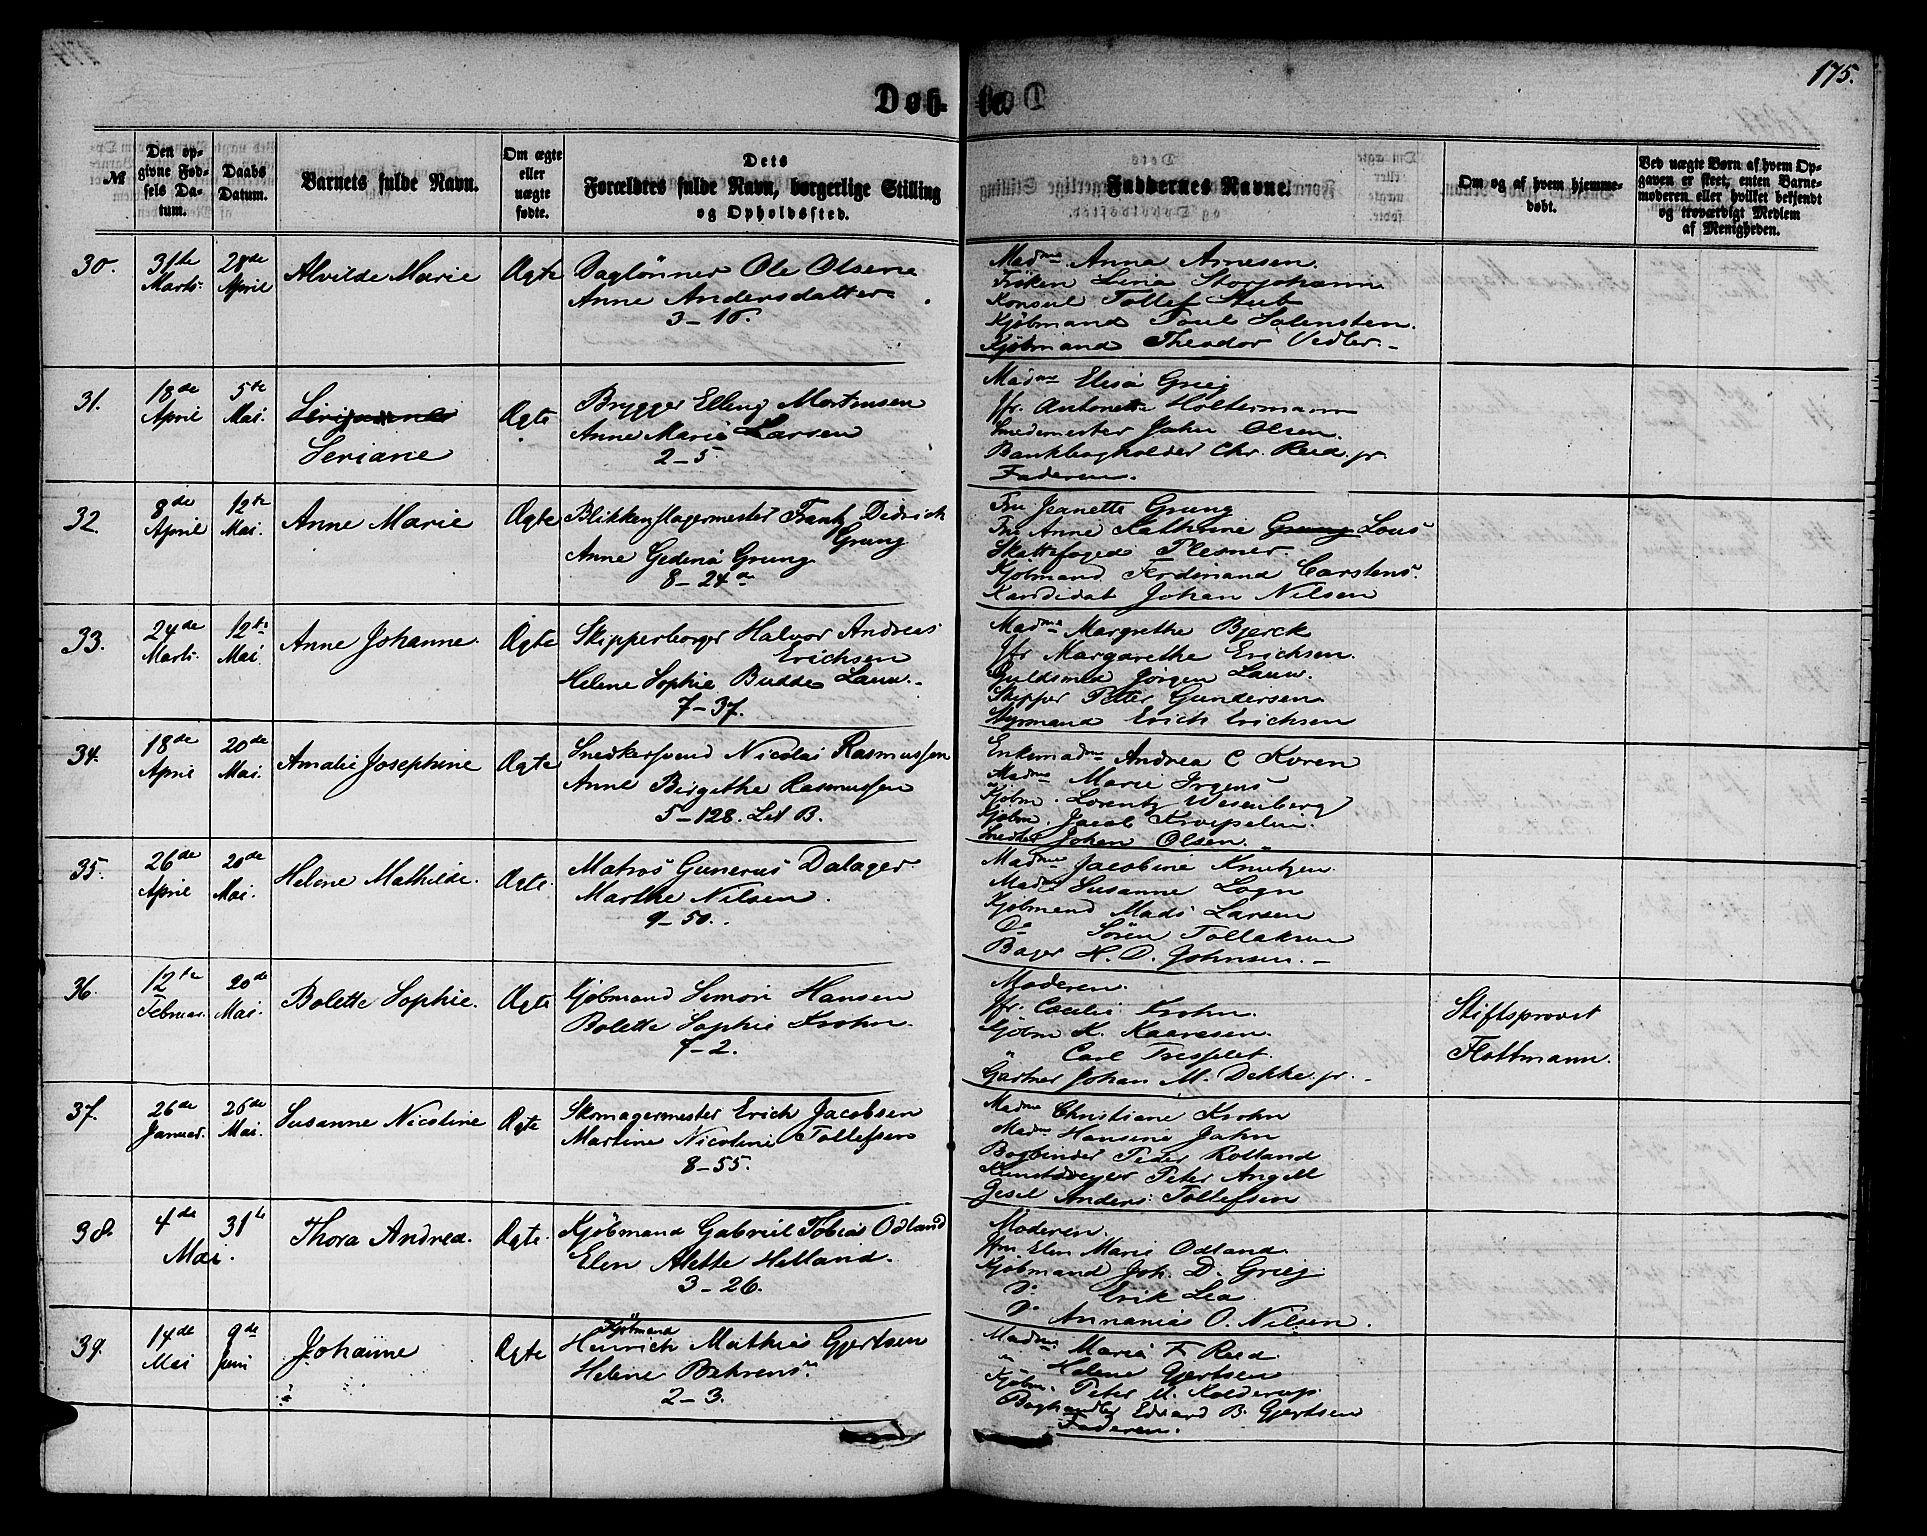 175.
Døb- te.
№
Den op-
givne Fød-
sels Da-
tum.
Daabs
Datum.
Barnets fulde Navn.
Om ægte
eller
uægte
fødte.
Dets
Forældres fulde Navn, borgerlige Stilling
og Opholdssted.
Faddernes Navne.
Om og af hvem hjemme-
døbt.
Ved uægte Børn af hvem Op-
gaven er skeet, enten Barne-
moderen eller hvilket bekjendt
og troværdigt Medlem
af Menigheden.
30. 31te Marts. 28de April Alvilde Marie Ægte Daglønner Ole Olsen
Anne Andersdatter
3-16.
Madme Anna Arnesen.
Frøken Lina Storjohann
Konsul Tollef Stub
Kjøbmand Poul Solensten.
Kjøbmand Theodor Vedler.
31. 18de April 5te Mai. Seriane Ægte Brygger Elling Mortensen
Anne Marie Larsen
2-5.
Madme Elisa Grieg
Jfr. Antonette Holtermann
Smedemester John Olsen.
Bankbogholder Chr. Reid jr.
Faderen.
32. 8de April 12te Mai. Anne Marie Ægte Blikkenslagermester Frantz Didrich
Grung
Anne Gedena Grung
8-24a
Fru Jeanette Grung
Fru Anne Kathrine Grung Lous
Skattefoged Plesner
Kjøbmand Ferdinand Carstens.
Kandidat Johan Nilsen
33. 24de Marts. 12te Mai. Anne Johanne. Ægte Skipperborger Halvor Andreas
Erichsen
Helene Sophie Budde Lauw.
7-37.
Madme Margrethe Bjerck
Jfr Margarethe Erichsen.
Guldsmed Jörgen Lauw.
Skipper Peter Gundersen
Styrmand Erich Erichsen
34. 18de April 20de Mai. Amalie Josephine Ægte Snedkersvend Nicolai Rasmussen
Anne Birgithe Rasmussen
5-128. Lit B.
Enkemadme Andrea C Koren
Madme Marie Irgens
Kjøbm. Lorentz Wesenberg
Kjøbm. Jacob Kroepelin.
Snedker Johan Olsen.
35. 26de April 20de Mai. Helene Mathilde. Ægte. Matros Gunerius Dalager.
Marthe Nilsen.
9-50.
Madme Jacobine Knutzen
Madme Susanne Logn
Kjøbmand Mads Larsen
Do Sören Tollaksen
Bager H. D. Johnsen.
36. 12te Februar. 20de Mai. Bolette Sophie. Ægte Kjøbmand Simon Hansen
Bolette Sophie Krohn.
7-2.
Moderen.
Jfr. Cecilie Krohn.
Kjøbm K. Kaaresen.
Carl
Gartner Johan M. Dekke jr.
Stiftsprovst
Flottmann.
37. 26de Januar. 26de Mai. Susanne Nicoline Ægte Skomagermester Erich Jacobsen
Martine Nicoline Tollefsen
8-55.
Madme Christiane Krohn
Madm Hansine Jahn
Bogbinder Peder Rolland
Kunstdreyer Peter Angell
Gesel Anders Tollefsen
38. 4de 31te Mai. Thora Andrea. Ægte. Kjøbmand Gabriel Tobias Odland
Elen Alette Helland.
3-26.
Moderen.
Elen Marie Odland.
Kjøbmand Joh. D. Grieg.
Do Erik Lea
Do Annanias O. Nilsen.
39. 14de Mai 9de Juni Johanne Ægte Kjøbmand
Heinrich Mathias Gjertsen
Helene Behrens.
2-3.
Madme Marie F Reid
" Helene Gjertsen
Kjøbm. Peter M. Kolderup.
Boghandler Edvard B. Gjertsen
Faderen.